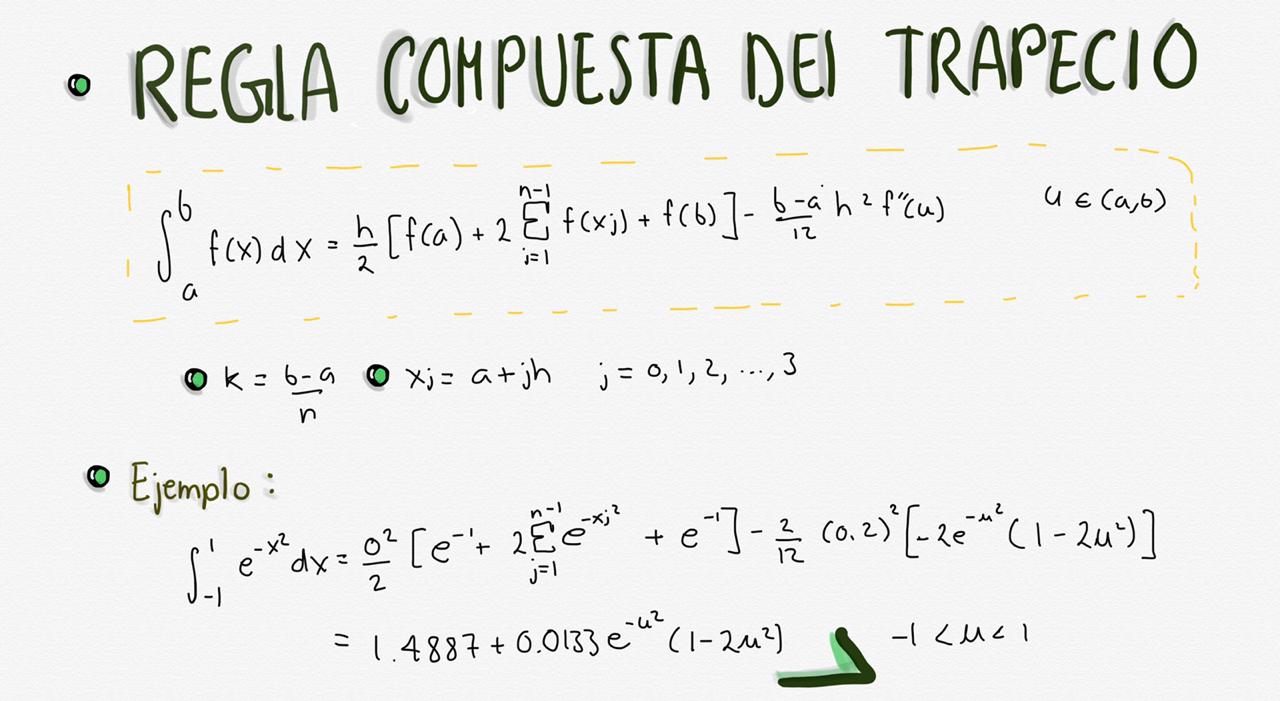 REGLA COMPUESTA DEL TRAPECIO
∫_a^b f(x) dx = h/2 [f(a) + 2 Σ_{j=1}^{n-1} f(xj) + f(b)] - (b-a)/12 h² f''(u)    u ∈ (a,b)
k = (b-a)/n    xj = a+jh    j = 0, 1, 2, ..., 3
Ejemplo:
∫_{-1}^{1} e^{-x²} dx = 0²/2 [e^{-1} + 2 Σ_{j=1}^{n-1} e^{-xj²} + e^{-1}] - 2/12 (0.2)² [-2e^{-u²} (1-2u²)]
= 1.4887 + 0.0133 e^{-u²} (1-2u²)    -1 < u < 1